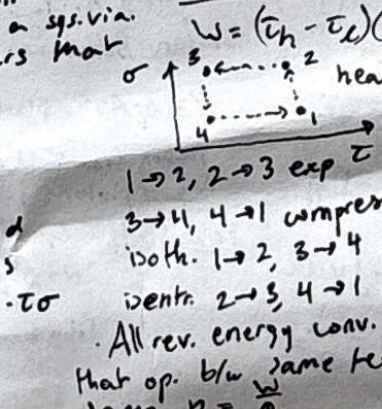 a sys. via.
rs that
W = (τh - τl)(
σ 3 2
hea
4 1
τ
1→2, 2→3 exp
3→4, 4→1 compres
isoth. 1→2, 3→4
isentr. 2→3, 4→1
d
s
· τσ
· All rev. energy conv.
that op. b/w same te
η = W